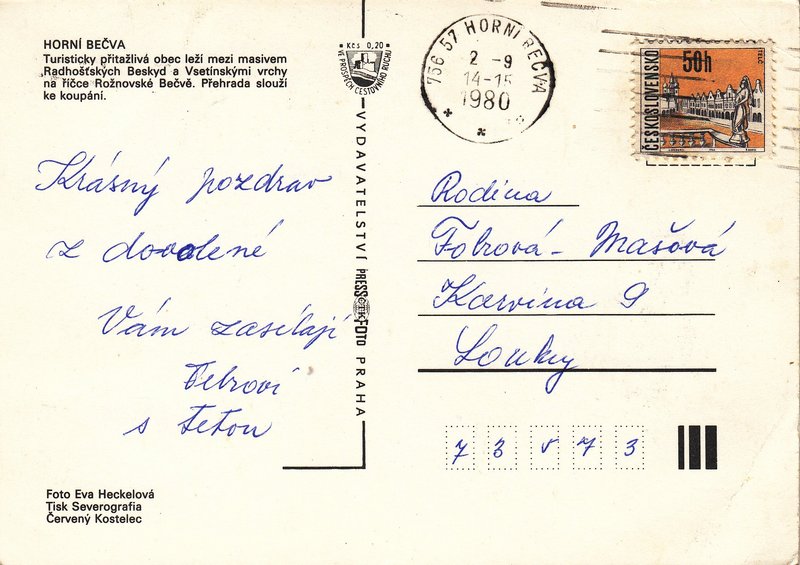 HORNÍ BEČVA
Turisticky přitažlivá obec leží mezi masivem
Radhošťských Beskyd a Vsetínskými vrchy
na říčce Rožnovské Bečvě. Přehrada slouží
ke koupání.
Kčs 0,20
VE PROSPĚCH CESTOVNÍHO RUCHU
756 57 HORNÍ BEČVA
2 -9
14-15
1980
50h
ČESKOSLOVENSKO
TELČ
Krásný pozdrav
z dovolené
Vám zasílají
s tetou
VYDAVATELSTVÍ PRESSFOTO PRAHA
Rodina
Fobrová - Mašová
Karvina 9
Louky
73573
Foto Eva Heckelová
Tisk Severografia
Červený Kostelec